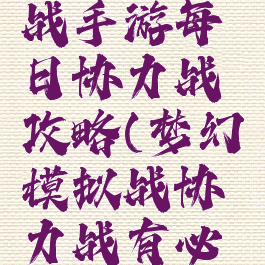 战手游每
日协力战
攻略(梦幻
模拟战协
力战有必